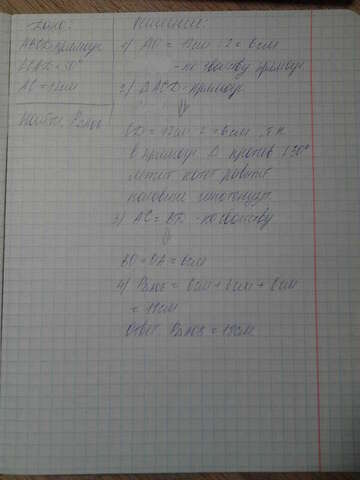 Дано:
ABCD прямоуг.
AC = 12см
Найти: Pаов
Решение:
1) AO = 12см : 2 = 6см
- по свойству прямоуг.
2) Δ ACD - прямоуг.
CD = 12см : 2 = 6см, т.к
в прямоуг. Δ против ∠30°
лежит катет равный
половине гипотенузы.
3) AC = BD - по свойству
BO = OA = 6см
4) Pаов = 6см + 6см + 6см
= 18см
Ответ: Pаов = 18см